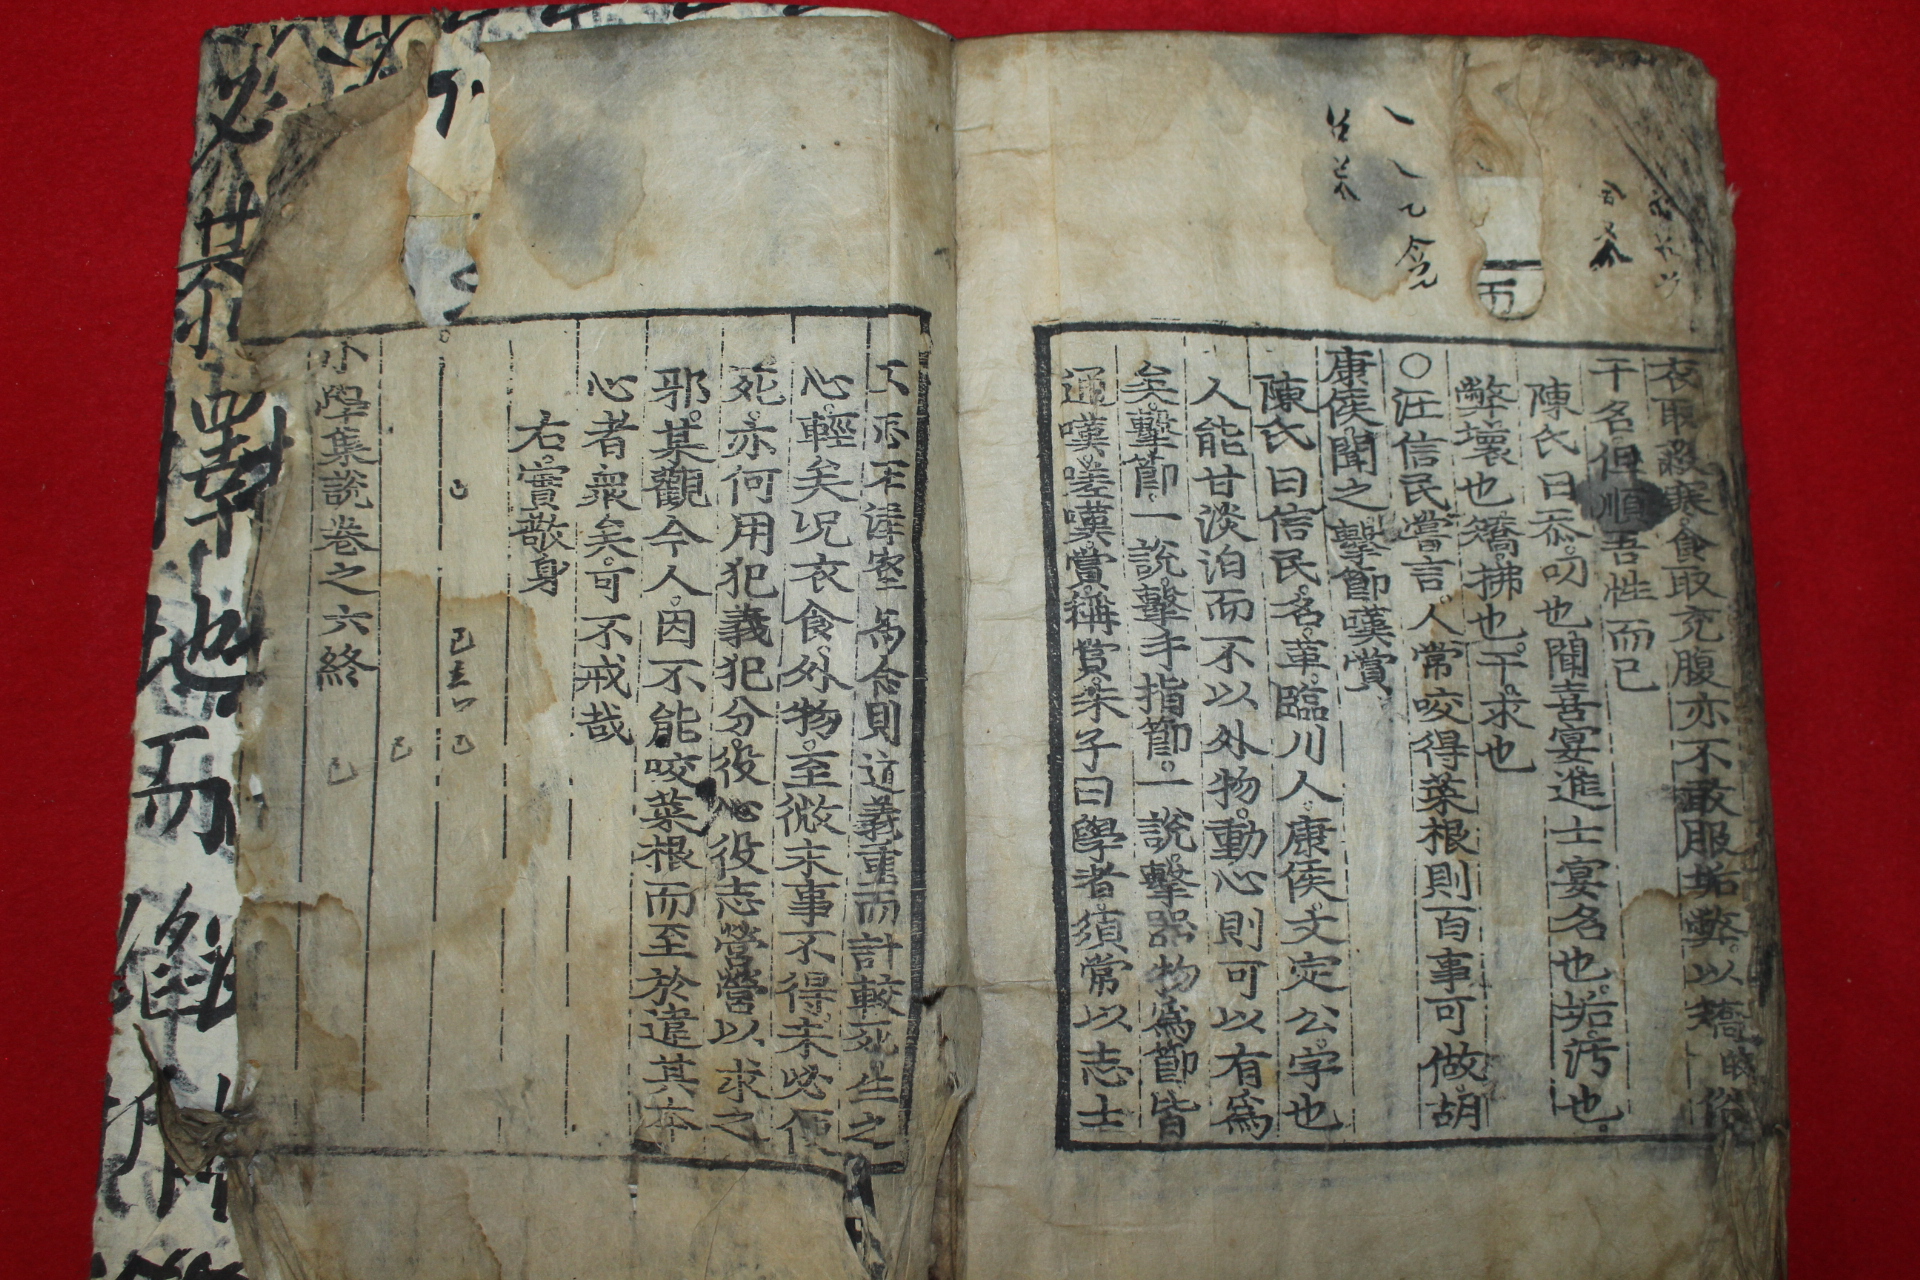 衣取蔽寒食取充腹亦不敢服垢弊以矯俗
干名但順吾性而已
陳氏曰忝叨也聞喜宴進士宴名也垢汚也
弊壞也矯拂也干求也
○汪信民嘗言人常咬得菜根則百事可做胡
康侯聞之擊節嘆賞
陳氏曰信民名革臨川人康侯文定公字也
人能甘淡泊而不以外物動心則可以有爲
矣擊節一說擊手指節一說擊器物爲節皆
通嘆嗟嘆賞稱賞朱子曰學者須常以志士
不忘在溝壑爲念則道義重而計較死生之
心輕矣况衣食外物至微末事不得未必便
死亦何用犯義犯分役心役志營營以求之
邪某觀今人因不能咬菜根而至於違其本
心者衆矣可不戒哉
右實敬身
小學集說卷之六終
必
其
擇
地
而